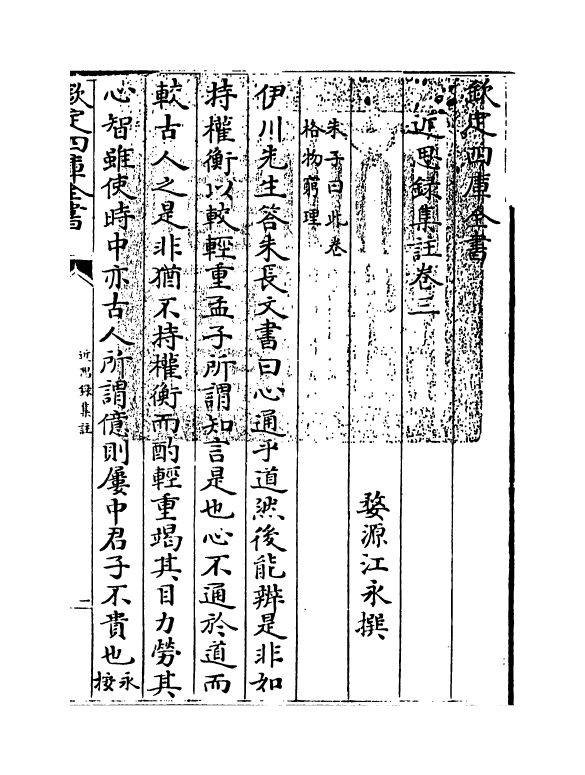 欽定四庫全書
近思録集註卷三
婺源江永撰
朱子曰此卷
格物窮理
伊川先生答朱長文書曰心通乎道然後能辨是非如
持權衡以較輕重孟子所謂知言是也心不通於道而
較古人之是非猶不持權衡而酌輕重竭其目力勞其
心智雖使時中亦古人所謂億則屢中君子不貴也永
按
欽定四庫全書
近思録集註
二